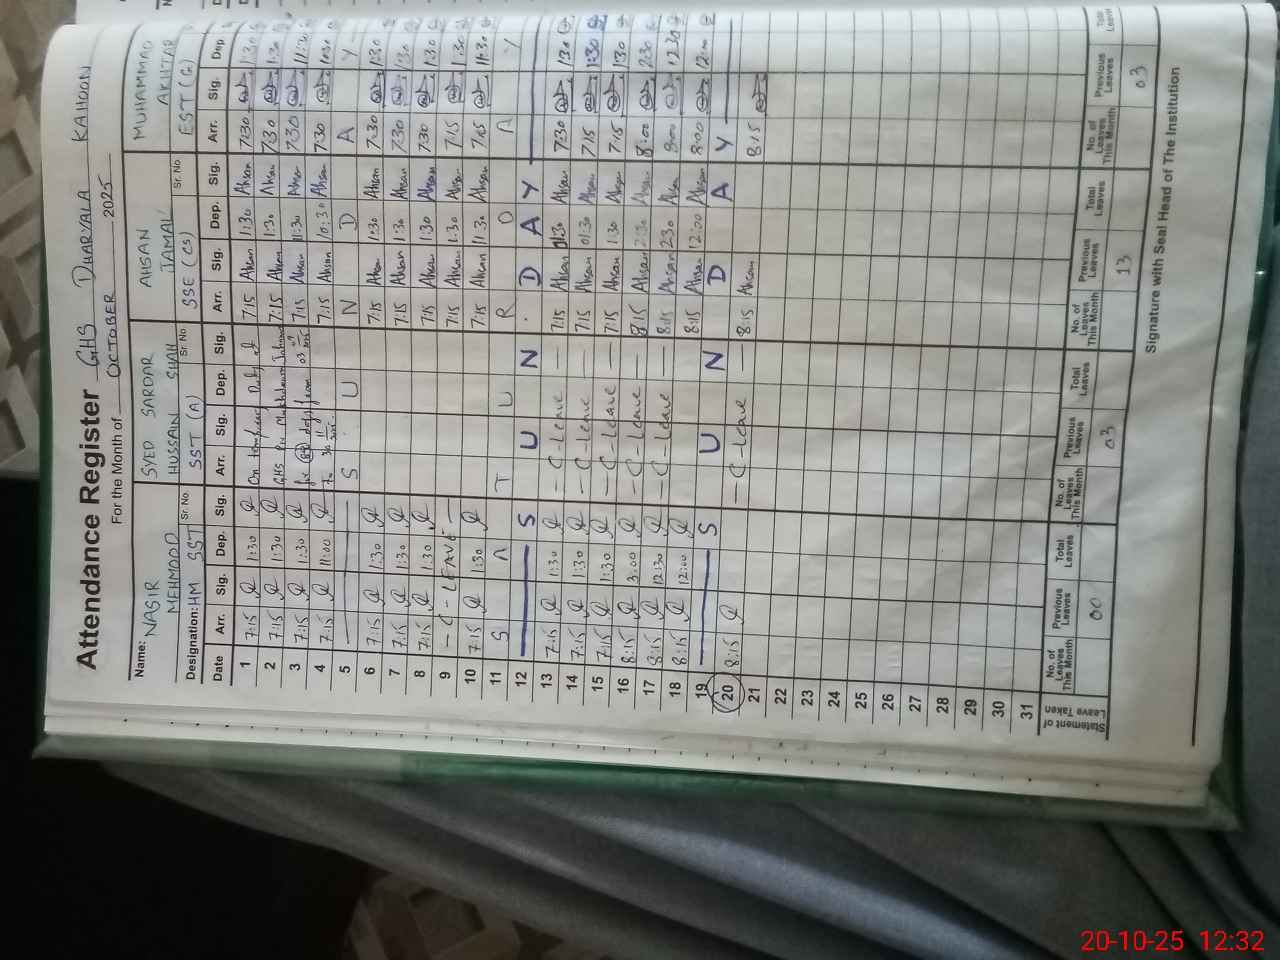 Attendance Register GHS DHARYALA KAHOON
For the Month of OCTOBER 2025
Name: NASIR MEHMOOD SYED SARDAR HUSSAIN SHAH AHSAN JAMAL MUHAMMAD AKHTAR
Designation: HM SST Sr. No SST (A) Sr. No SSE (CS) Sr. No EST (G)
Date Arr. Sig. Dep. Sig. Arr. Sig. Dep. Sig. Arr. Sig. Dep. Sig. Arr. Sig. Dep.
1 7:15 1:30 On Duty at 7:15 Ahsan 1:30 Ahsan 7:30 1:30
2 7:15 1:30 GHS 7:15 Ahsan 1:30 Ahsan 7:30 1:30
3 7:15 1:30 days from 03 7:15 Ahsan 11:30 Ahsan 7:30 11:30
4 7:15 11:00 7:15 Ahsan 10:30 Ahsan 7:30
5 S U N D A Y
6 7:15 1:30 7:15 Ahsan 1:30 Ahsan 7:30 1:30
7 7:15 1:30 7:15 Ahsan 1:30 Ahsan 7:30 1:30
8 7:15 1:30 7:15 Ahsan 1:30 Ahsan 7:30 1:30
9 — C - LEAVE — 7:15 Ahsan 1:30 Ahsan 7:15 1:30
10 7:15 1:30 7:15 Ahsan 11:30 Ahsan 7:15 11:30
11 S A T U R D A Y
12 S U N D A Y
13 7:15 1:30 — C - Leave — 7:15 Ahsan 01:30 Ahsan 7:30 1:30
14 7:15 1:30 — C - Leave — 7:15 Ahsan 01:30 Ahsan 7:15 1:30
15 7:15 1:30 — C - Leave — 7:15 Ahsan 1:30 Ahsan 7:15 1:30
16 8:15 3:00 — C - Leave — 8:15 Ahsan 2:30 Ahsan 8:00 2:30
17 8:15 12:30 — C - Leave — 8:15 Ahsan 2:30 Ahsan 8:00 12:30
18 8:15 12:00 8:15 Ahsan 12:00 Ahsan 8:00 12:00
19 S U N D A Y
20 8:15 — C - Leave — 8:15 Ahsan 8:15
21
22
23
24
25
26
27
28
29
30
31
Statement of Leave Taken
No. of Leaves This Month Previous Leaves Total Leaves No. of Leaves This Month Previous Leaves Total Leaves No. of Leaves This Month Previous Leaves Total Leaves No. of Leaves This Month Previous Leaves Total Leave
00 03 13 03
Signature with Seal Head of The Institution
20-10-25 12:32